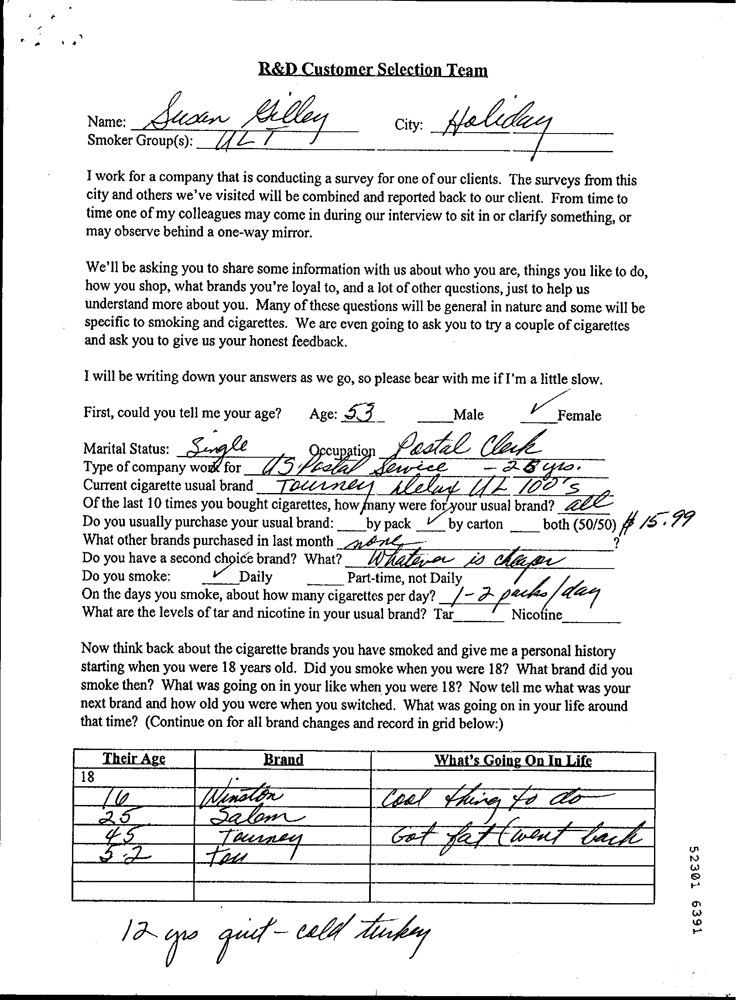 R&D Customer Selection Team
Name: Susan Gilley City: Holiday
Smoker Group(s): ULT
I work for a company that is conducting a survey for one of our clients. The surveys from this
city and others we've visited will be combined and reported back to our client. From time to
time one of my colleagues may come in during our interview to sit in or clarify something, or
may observe behind a one-way mirror.
We'll be asking you to share some information with us about who you are, things you like to do,
how you shop, what brands you're loyal to, and a lot of other questions, just to help us
understand more about you. Many of these questions will be general in nature and some will be
specific to smoking and cigarettes. We are even going to ask you to try a couple of cigarettes
and ask you to give us your honest feedback.
I will be writing down your answers as we go, so please bear with me if I'm a little slow.
First, could you tell me your age? Age: 53 ____Male ✓ Female
Marital Status: Single Occupation Postal Clerk
Type of company work for US Postal Service - 28 yrs.
Current cigarette usual brand Tourney Delux UL 100's
Of the last 10 times you bought cigarettes, how many were for your usual brand? all
Do you usually purchase your usual brand: ___by pack ✓ by carton ___both (50/50) $15.99
What other brands purchased in last month none ?
Do you have a second choice brand? What? Whatever is cheaper
Do you smoke: ✓ Daily ____ Part-time, not Daily
On the days you smoke, about how many cigarettes per day? 1-2 packs/day
What are the levels of tar and nicotine in your usual brand? Tar______ Nicotine______
Now think back about the cigarette brands you have smoked and give me a personal history
starting when you were 18 years old. Did you smoke when you were 18? What brand did you
smoke then? What was going on in your like when you were 18? Now tell me what was your
next brand and how old you were when you switched. What was going on in your life around
that time? (Continue on for all brand changes and record in grid below:)
Their Age Brand What's Going On In Life
18
16 Winston Cool thing to do
25 Salem
45 Tourney Got fat (went back
52
12 yrs quit - cold turkey
52301 6391